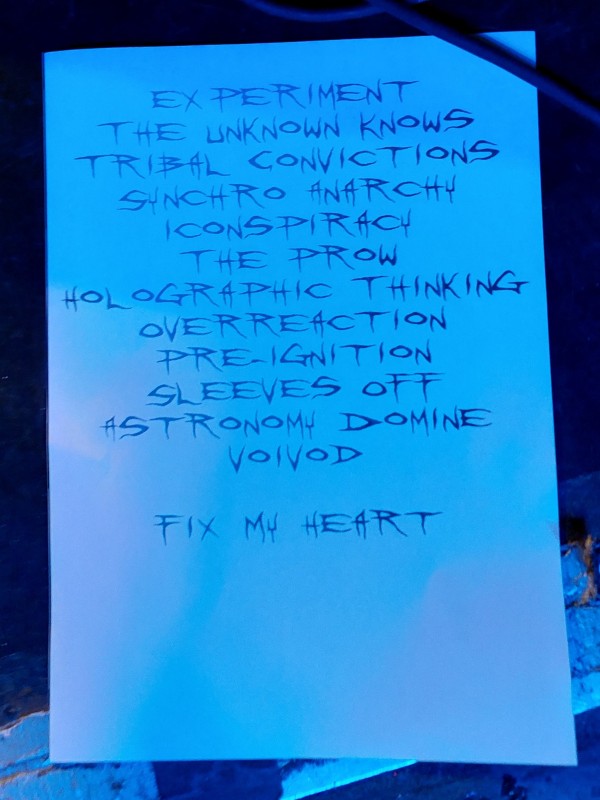 EXPERIMENT
THE UNKNOWN KNOWS
TRIBAL CONVICTIONS
SYNCHRO ANARCHY
ICONSPIRACY
THE PROW
HOLOGRAPHIC THINKING
OVERREACTION
PRE-IGNITION
SLEEVES OFF
ASTRONOMY DOMINE
VOIVOD
FIX MY HEART